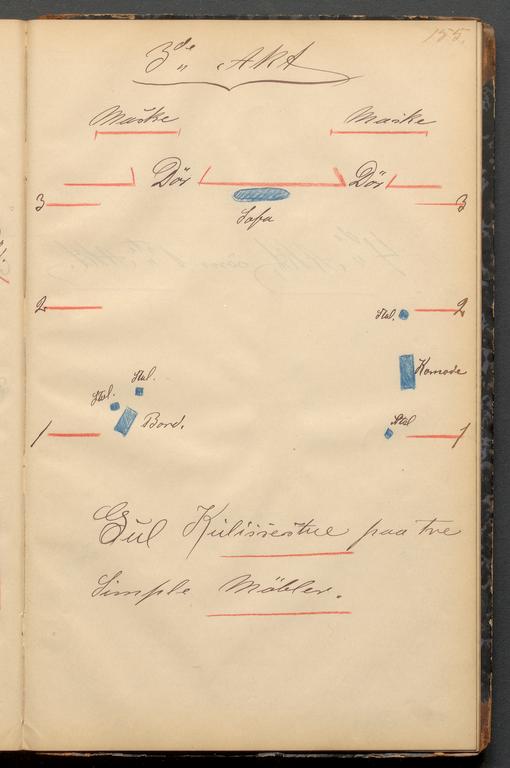 155.
3de Akt
Maske Maske
Dör Dör
3 3
Sofa
2 Stol. 2
Komode
Stol. Stol.
Bord. Stol
1 1
Gul Kulissestue paa tre
Simple Möbler.